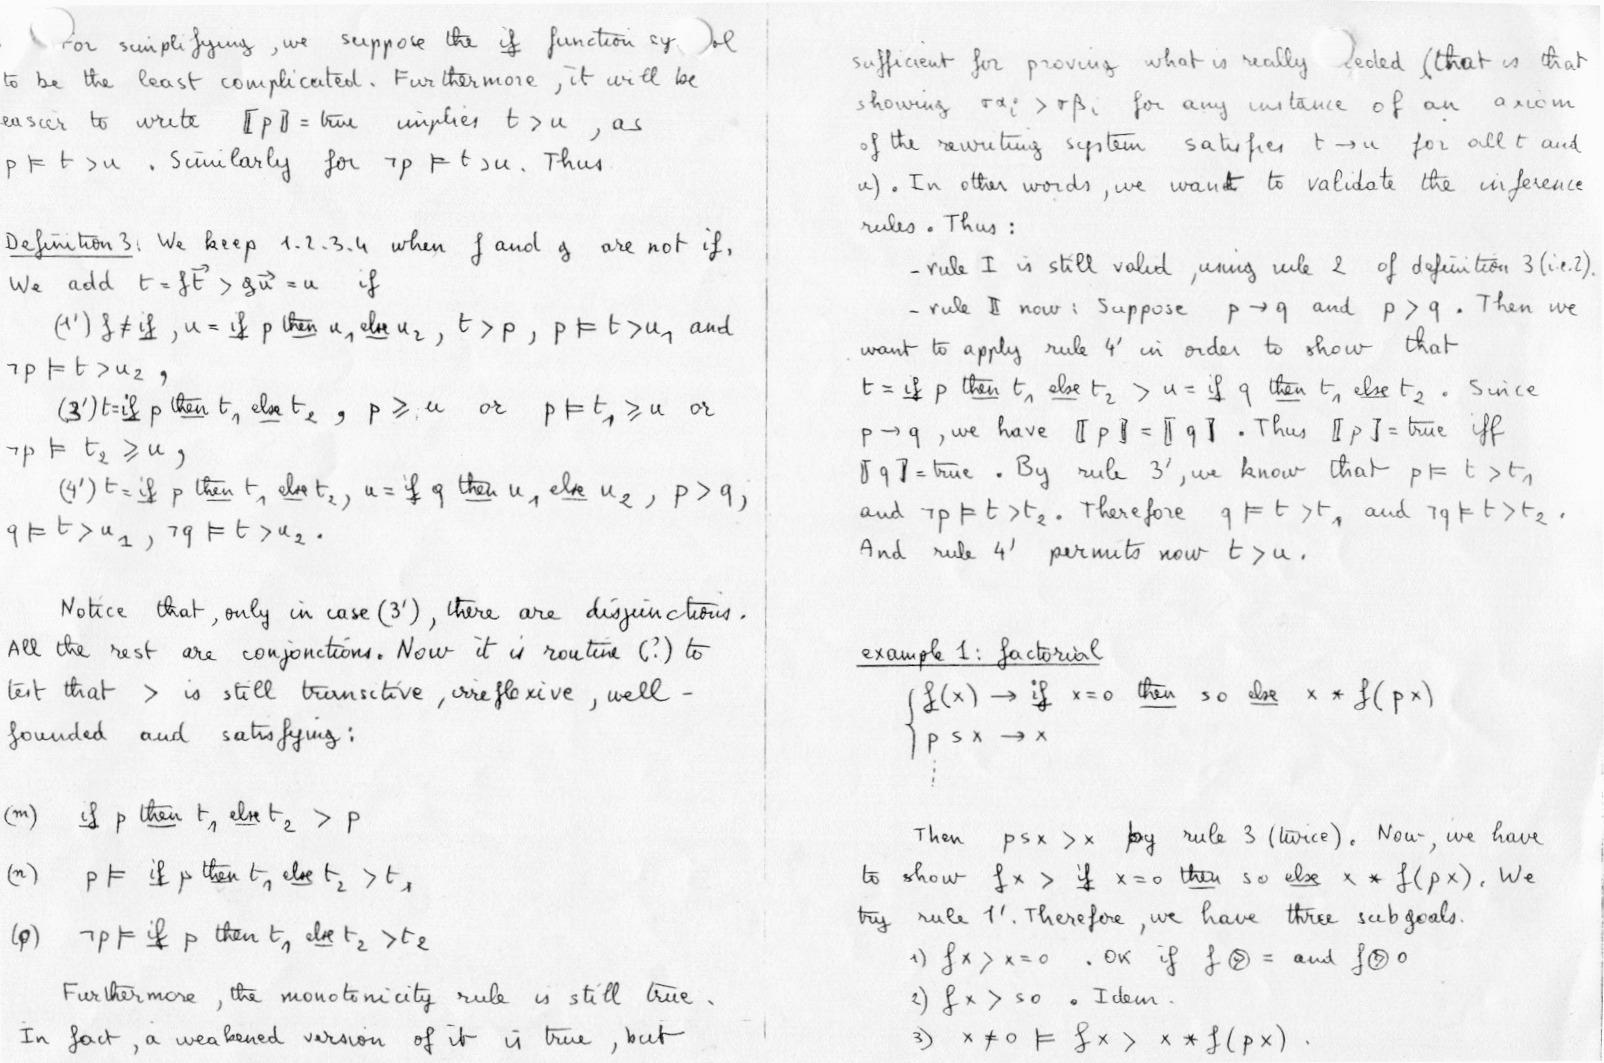 For simplifying, we suppose the if function sy ol
to be the least complicated. Furthermore, it will be
easier to write ⟦p⟧ = true implies t > u, as
p ⊨ t > u. Similarly for ¬p ⊨ t > u. Thus
Definition 3: We keep 1.2.3.4 when f and g are not if.
We add t = f t⃗ > g u⃗ = u if
(1') f ≠ if, u = if p then u₁ else u₂, t > p, p ⊨ t > u₁ and
¬p ⊨ t > u₂,
(3') t = if p then t₁ else t₂, p ⩾ u or p ⊨ t₁ ⩾ u or
¬p ⊨ t₂ ⩾ u,
(4') t = if p then t₁ else t₂, u = if q then u₁ else u₂, p > q,
q ⊨ t > u₁, ¬q ⊨ t > u₂.
Notice that, only in case (3'), there are disjunctions.
All the rest are conjonctions. Now it is routine (?) to
test that > is still transitive, irreflexive, well-
founded and satisfying:
(m) if p then t₁ else t₂ > p
(n) p ⊨ if p then t₁ else t₂ > t₁
(p) ¬p ⊨ if p then t₁ else t₂ > t₂
Furthermore, the monotonicity rule is still true.
In fact, a weakened version of it is true, but
sufficient for proving what is really eeded (that is that
showing σαᵢ > σβᵢ for any instance of an axiom
of the rewriting system satisfies t → u for all t and
u). In other words, we want to validate the inference
rules. Thus:
- rule I is still valid, using rule 2 of definition 3 (i.e. 2).
- rule II now: Suppose p → q and p > q. Then we
want to apply rule 4' in order to show that
t = if p then t₁ else t₂ > u = if q then t₁ else t₂. Since
p → q, we have ⟦p⟧ = ⟦q⟧. Thus ⟦p⟧ = true iff
⟦q⟧ = true. By rule 3', we know that p ⊨ t > t₁
and ¬p ⊨ t > t₂. Therefore q ⊨ t > t₁ and ¬q ⊨ t > t₂.
And rule 4' permits now t > u.
example 1: factorial
f(x) → if x=0 then s0 else x * f(px)
p s x → x
⋮
Then psx > x by rule 3 (twice). Now, we have
to show fx > if x=0 then s0 else x * f(px). We
try rule 1'. Therefore, we have three subgoals.
1) fx > x=0. OK if f ⧁ = and f ⧁ 0
2) fx > s0. Idem.
3) x ≠ 0 ⊨ fx > x * f(px).